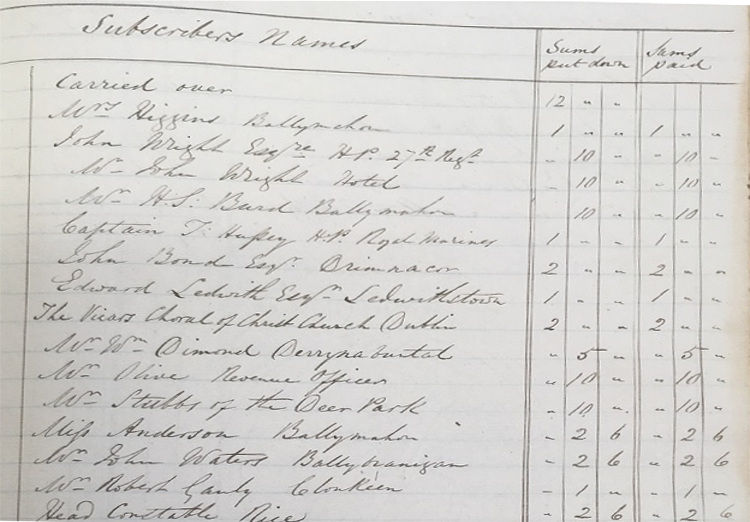 Subscribers Names Sums put down Sums paid
Carried over 12 " "
Mrs Higgins Ballymahon 1 " " 1 " "
John Wright Esqre H.P. 27th Regt " 10 " " 10 "
Mr John Wright Hotel " 10 " " 10 "
Mr H.S. Burd Ballymahon 10 " " 10 "
Captain T. Hussey H.P. Royal Marines 1 " " 1 " "
John Bond Esqr 2 " " 2 " "
Edward Ledwith Esqr Ledwithstown 1 " " 1 " "
The Vicars Choral of Christ Church Dublin 2 " " 2 " "
Mr Wm Dimond " 5 " " 5 "
Mr Olive Revenue Officer " 10 " " 10 "
Mr Stubbs of the Deer Park " 10 " " 10 "
Miss Anderson Ballymahon " 2 6 " 2 6
Mr John Waters Ballybranigan " 2 6 " 2 6
Mr Robert Clonkeen " 1 " " 1 "
Head Constable Rice " 2 6 " 2 6